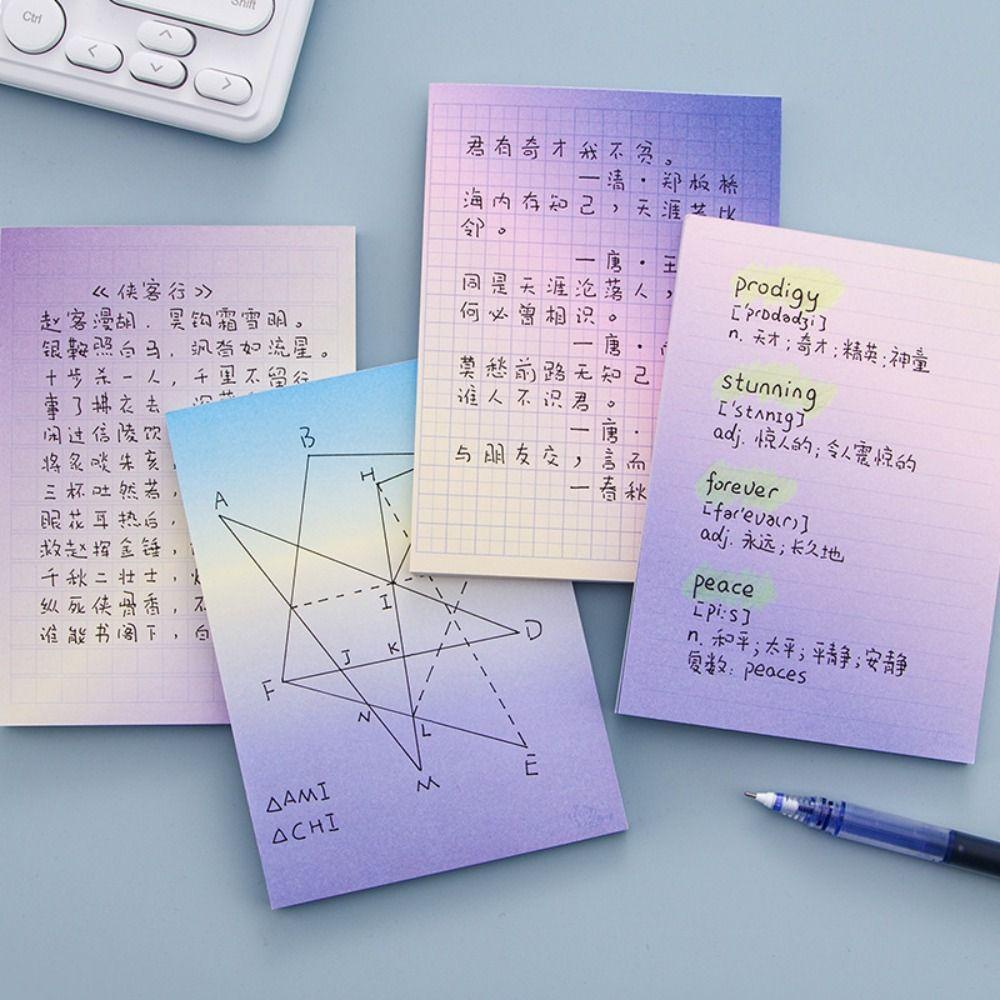 Ctrl
Shift
《侠客行》
赵客漫胡．吴钩霜雪明。
银鞍照白马，飒沓如流星。
十步杀一人，千里不留行
事了拂衣去，深
闲过信陵饮
将炙啖朱亥，
三杯吐然若，
眼花耳热后，
救赵挥金锤，
千秋二壮士，
纵死侠骨香，不
谁能书阁下，白
B
H
A
I
D
J
K
F
N
L
M
E
△AMI
△CHI
君有奇才我不贫。
一清·郑板桥
海内存知己，天涯若比
邻。
一唐·王
同是天涯沦落人，
何必曾相识。
一唐·
莫愁前路无知己
谁人不识君。
一唐·
与朋友交，言而
一春秋
prodigy
['prɒdədʒi]
n. 天才；奇才；精英；神童
stunning
['stʌnɪg]
adj. 惊人的；令人震惊的
forever
[fər'evə(r)]
adj. 永远；长久地
peace
[pi:s]
n. 和平；太平；平静；安静
复数：peaces